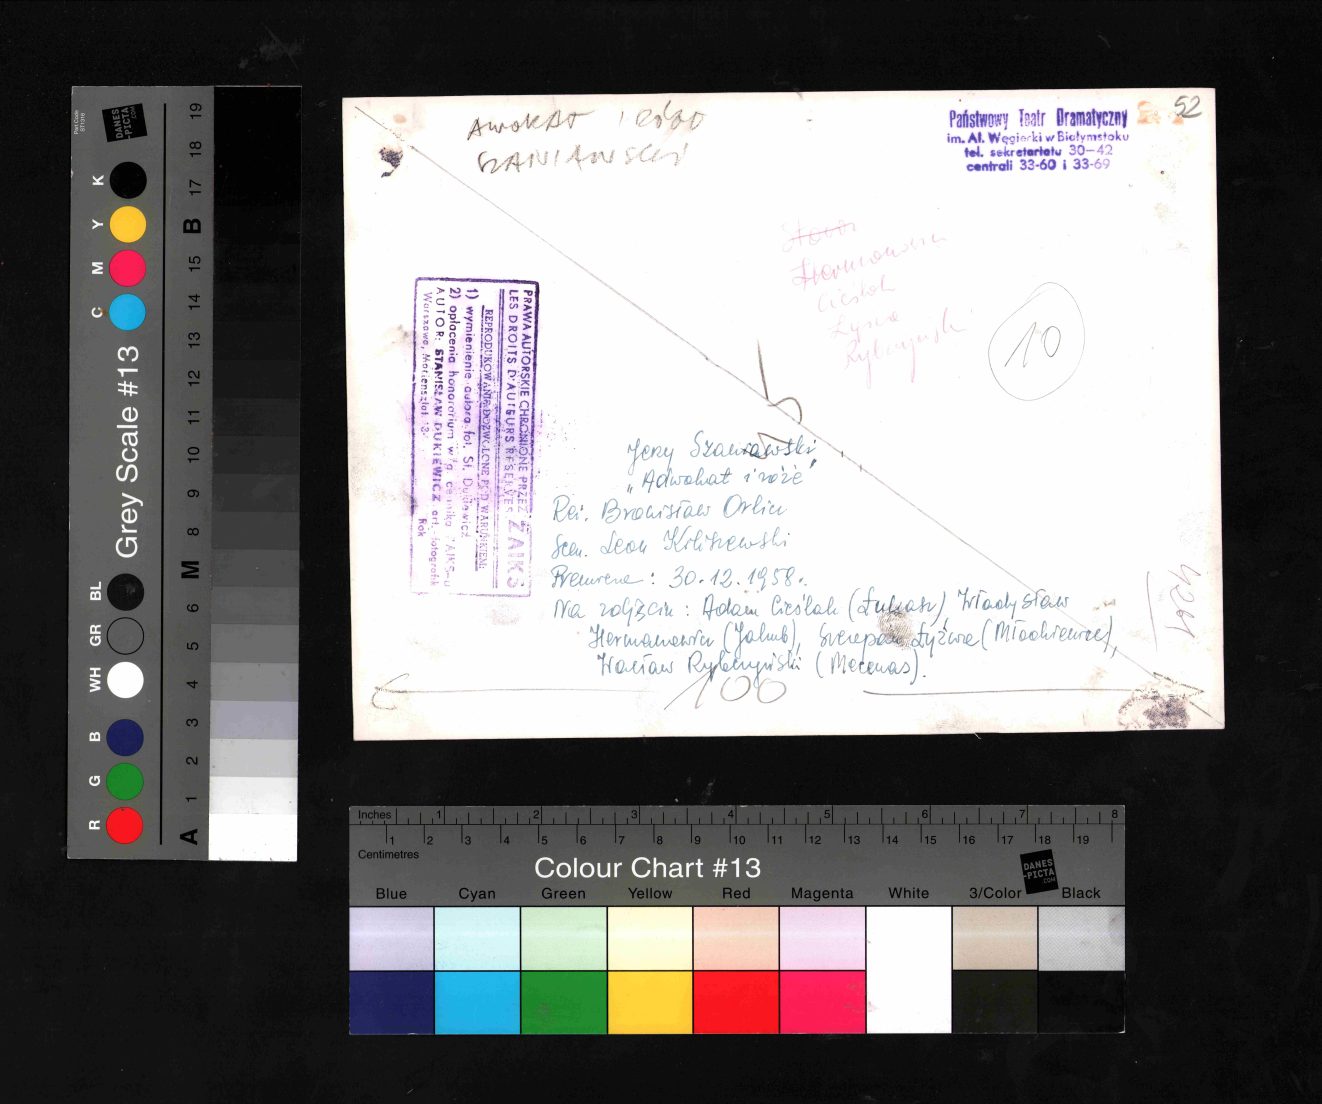 Awokat i róże
SZANIAWSKI
Państwowy Teatr Dramatyczny
im. Al. Węgierki w Białymstoku
tel. sekretariatu 30-42
centrali 33-60 i 33-69
52
Hermanowicz
Cieślak
Łyżwa
Rybczyński
10
PRAWA AUTORSKIE CHRONIONE PRZEZ ZAIKS
LES DROITS D'AUTEURS RESERVES
REPRODUKOWANIE DOZWOLONE POD WARUNKIEM:
1) wymienienie autora fot. St. Dukiewicz
2) opłacenia honorarium wg. cennika ZAIKS-u
AUTOR: STANISŁAW DUKIEWICZ art.-fotografik
Warszawa, Mariensztat 13 Rok
Jerzy Szaniawski
"Adwokat i róże"
Reż. Bronisław Orlicz
Scen. Leon Kiliszewski
Premiera: 30.12.1958.
Na zdjęciu: Adam Cieślak (Łukasz) Władysław
Hermanowicz (Jakub), Szczepan Łyżwa (Młodzieniec),
Wacław Rybczyński (Mecenas).
100
4264
Part Code
DANES
-PICTA
.COM
Grey Scale #13
R G B WH GR BL C M Y K
A 1 2 3 4 5 6 M 8 9 10 11 12 13 14 15 B 17 18 19
Inches 1 2 3 4 5 6 7 8
1 2 3 4 5 6 7 8 9 10 11 12 13 14 15 16 17 18 19
Centimetres
Colour Chart #13
DANES
-PICTA
.COM
Blue Cyan Green Yellow Red Magenta White 3/Color Black